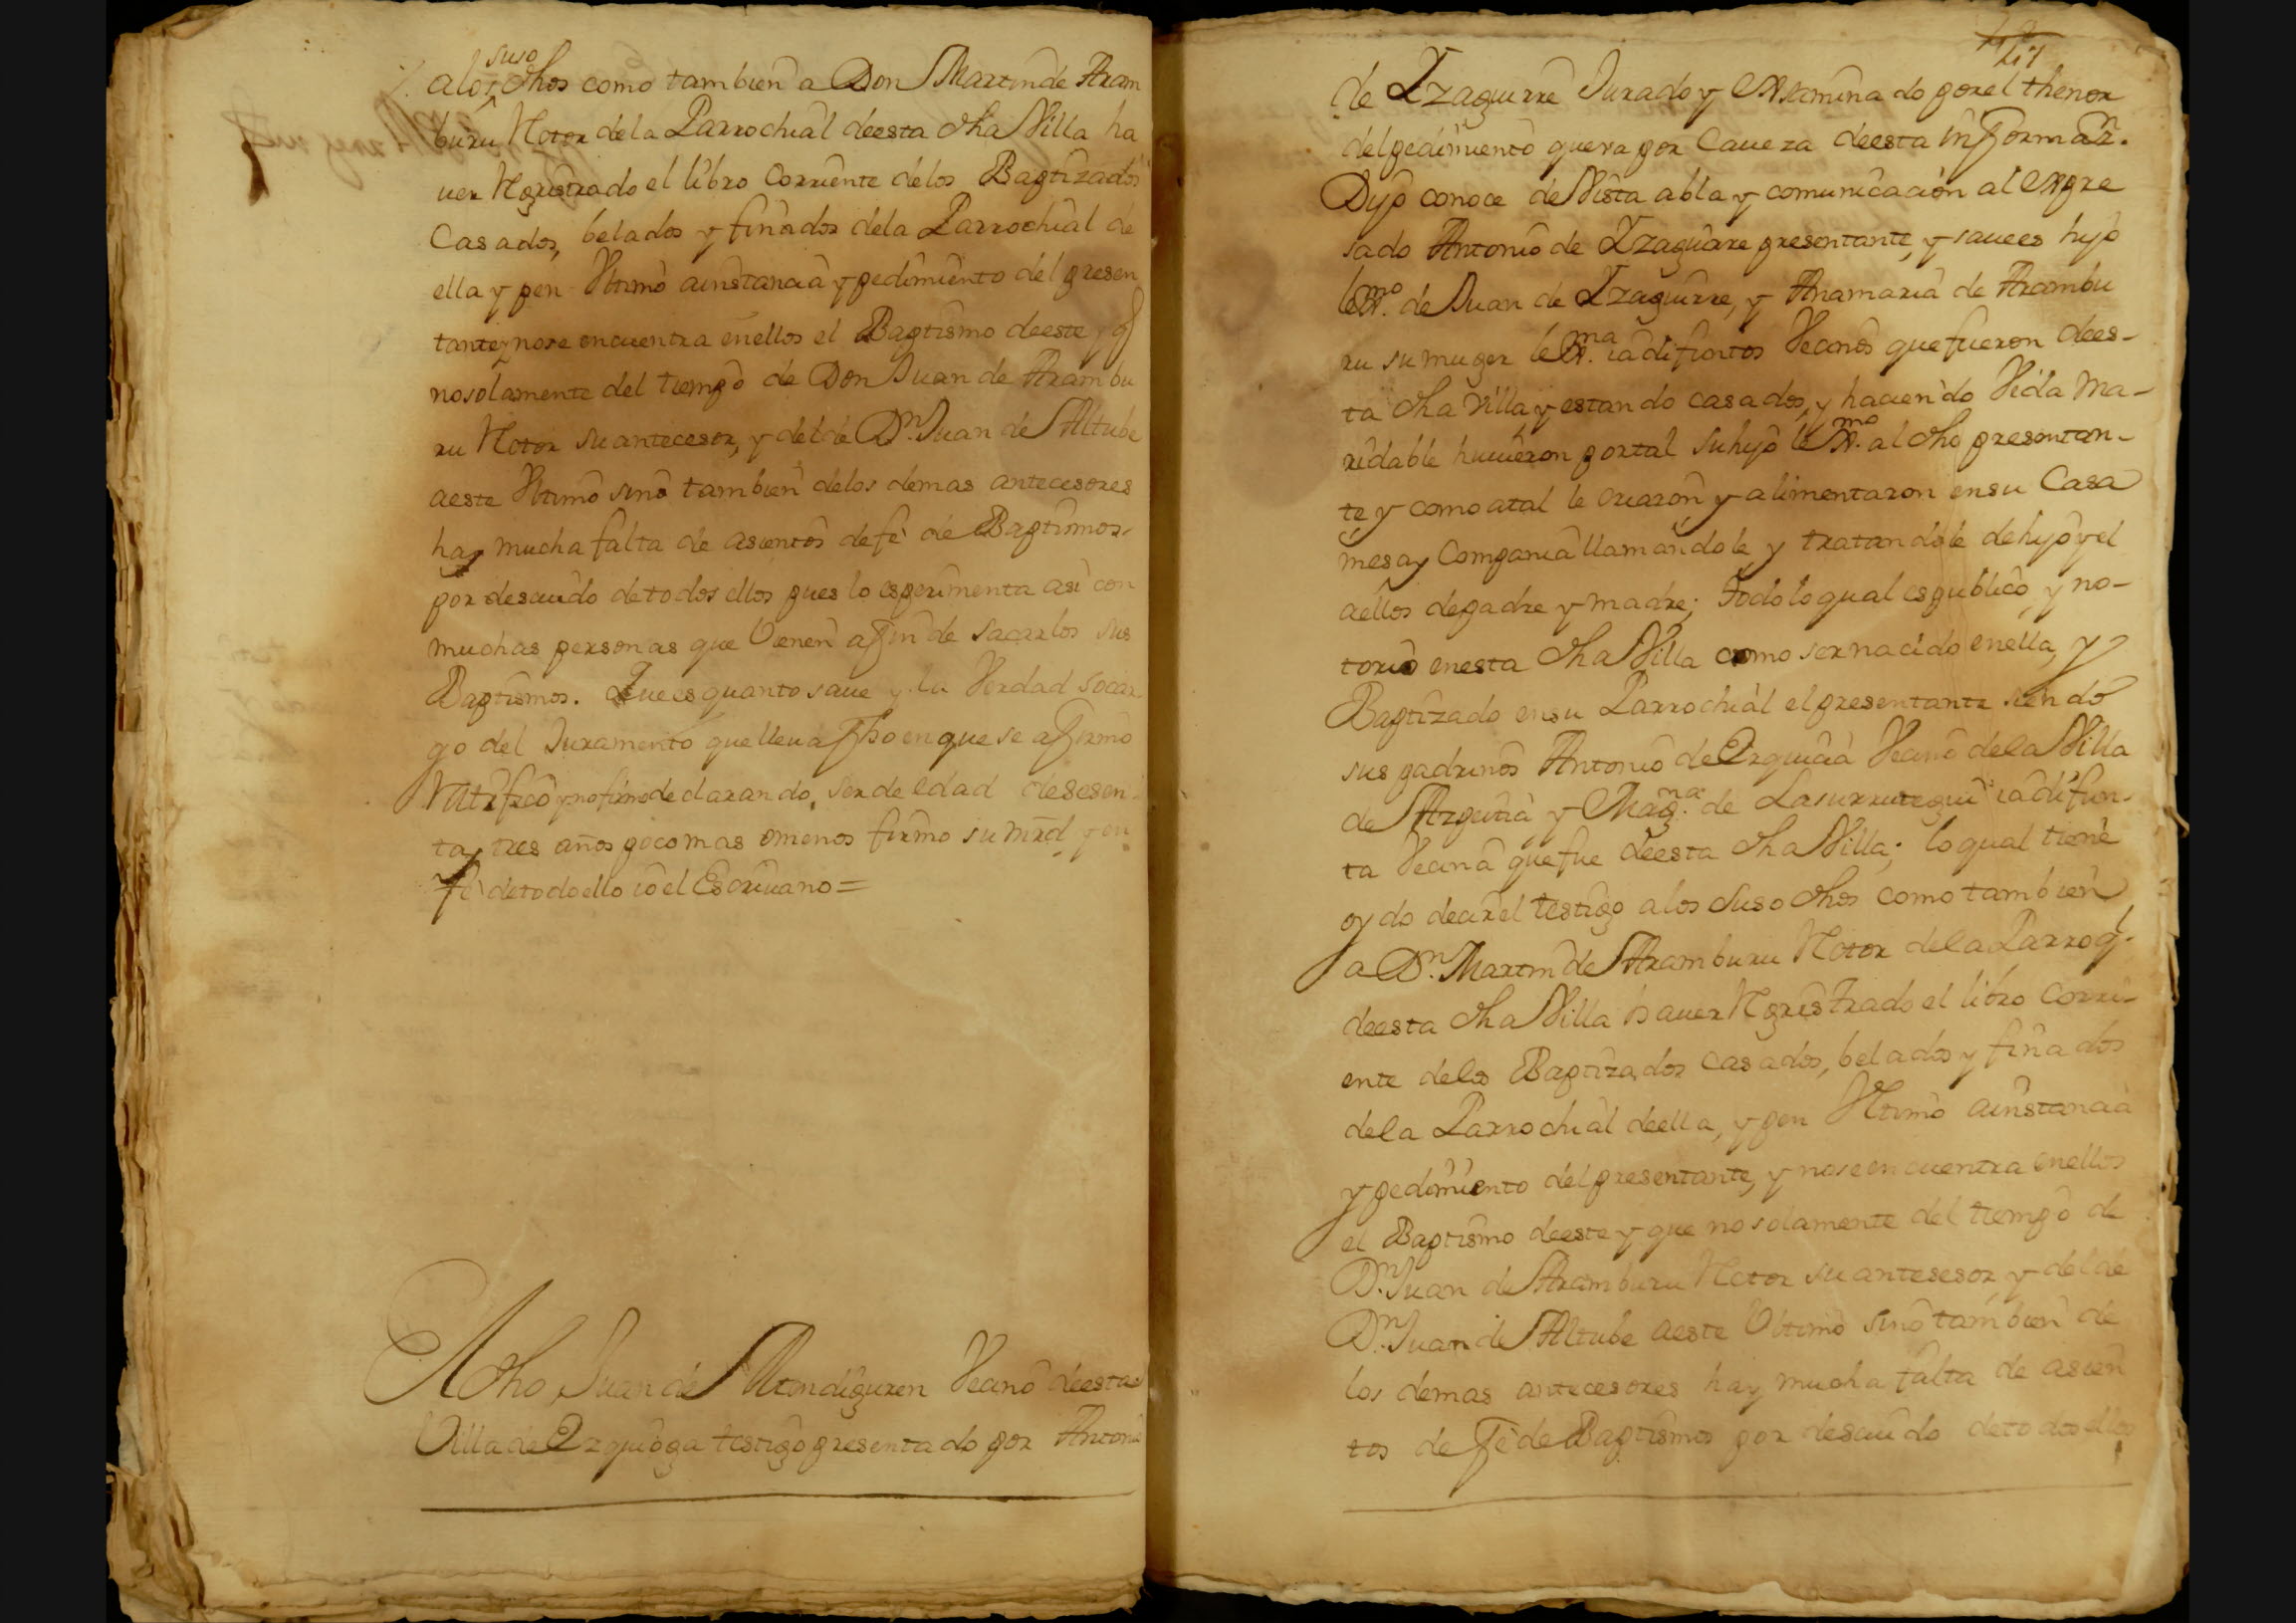 alos suso dhos como tambien a Don Martin de Aram
buru Retor dela Parrochial deesta dha Villa ha
uer Registrado el libro Corriente delos Baptizados
Casados, belados y finados dela Parrochial de
ella y pen Vltimo ainstancia y pedimiento del presen
tante, y nose encuentra enellos el Baptismo deeste, y q
nosolamente del tiempo de Don Juan de Arambu
ru Retor su antecesor, y del de Dn. Juan de Altube
aeste Vltimo sino tambien delos demas antecesores
hay mucha falta de asientos de fe de Baptismos
por descuido detodos ellos pues lo esperimenta asi con
muchas personas que Vienen afin de sacarlos sus
Baptismos. Que es quanto saue y la Verdad socar
go del Juramento que lleua fho en que se afirmo
Ratifico y no firmo declarando, ser de edad de sesen
tay tres años poco mas omenos firmo su mrd y en
fe detodoello io el Escriuano =
Adho Juan de Mendiguren Vecino deesta
Villa de Ezquioga testigo presentado por Antonio
de Yzaguirre Jurado y Exsaminado por el thenor
del pedimiento que va por Caueza deesta informazn.
Dijo conoce de Vista abla y comunicacion al Expre
sado Antonio de Yzaguirre presentante, y saue es hijo
lexmo. de Juan de Yzaguirre, y Anamaria de Arambu
ru su muger lexma. ia difuntos Vecinos que fueron dees-
ta dha Villa y estando casados, y haciendo Vida Ma-
ridable huuieron por tal su hijo lexmo. al dho presentan-
te y como atal le criaron y alimentaron en su Casa
mesa y Compania llamandole y tratandole de hijo y el
aellos de padre y madre; Todo lo qual es publico, y no-
torio en esta dha Villa como ser nacido en ella, y
Baptizado en su Parrochial el presentante siendo
sus padrinos Antonio de Ezquiaa Vecino dela Villa
de Azpeitia y Magna. de Lasurrutegui ia difun-
ta Vecina que fue deesta dha Villa; lo qual tiene
oydo decir el testigo a los suso dhos como tambien
a Dn. Martin de Aramburu Retor dela Parroql.
deesta dha Villa hauer Registrado el libro Corri-
ente delos Baptizados Casados, belados y finados
dela Parrochial deella, y pen Vltimo ainstancia
y pedimiento del presentante, y nose encuentra enellos
el Baptismo deeste y que no solamente del tiempo de
Dn. Juan de Aramburu Retor su antesesor, y del de
Dn. Juan de Altube aeste Vltimo sino tambien de
los demas antecesores hay mucha falta de asien
tos de Fe de Baptismos por descuido detodos ellos